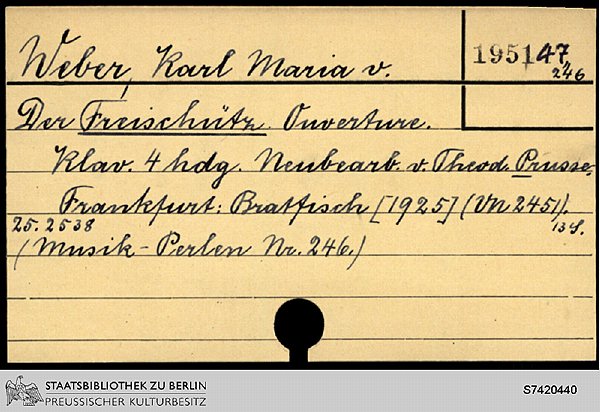 Weber, Karl Maria v.
195147,
246
Der Freischütz. Ouverture.
Klav. 4 hdg. Neubearb. v. Theod. Prusse.
Frankfurt: Bratfisch [1925] (VN 2451).
25.2538
13 S.
(Musik-Perlen Nr. 246.)
STAATSBIBLIOTHEK ZU BERLIN
PREUSSISCHER KULTURBESITZ
S7420440